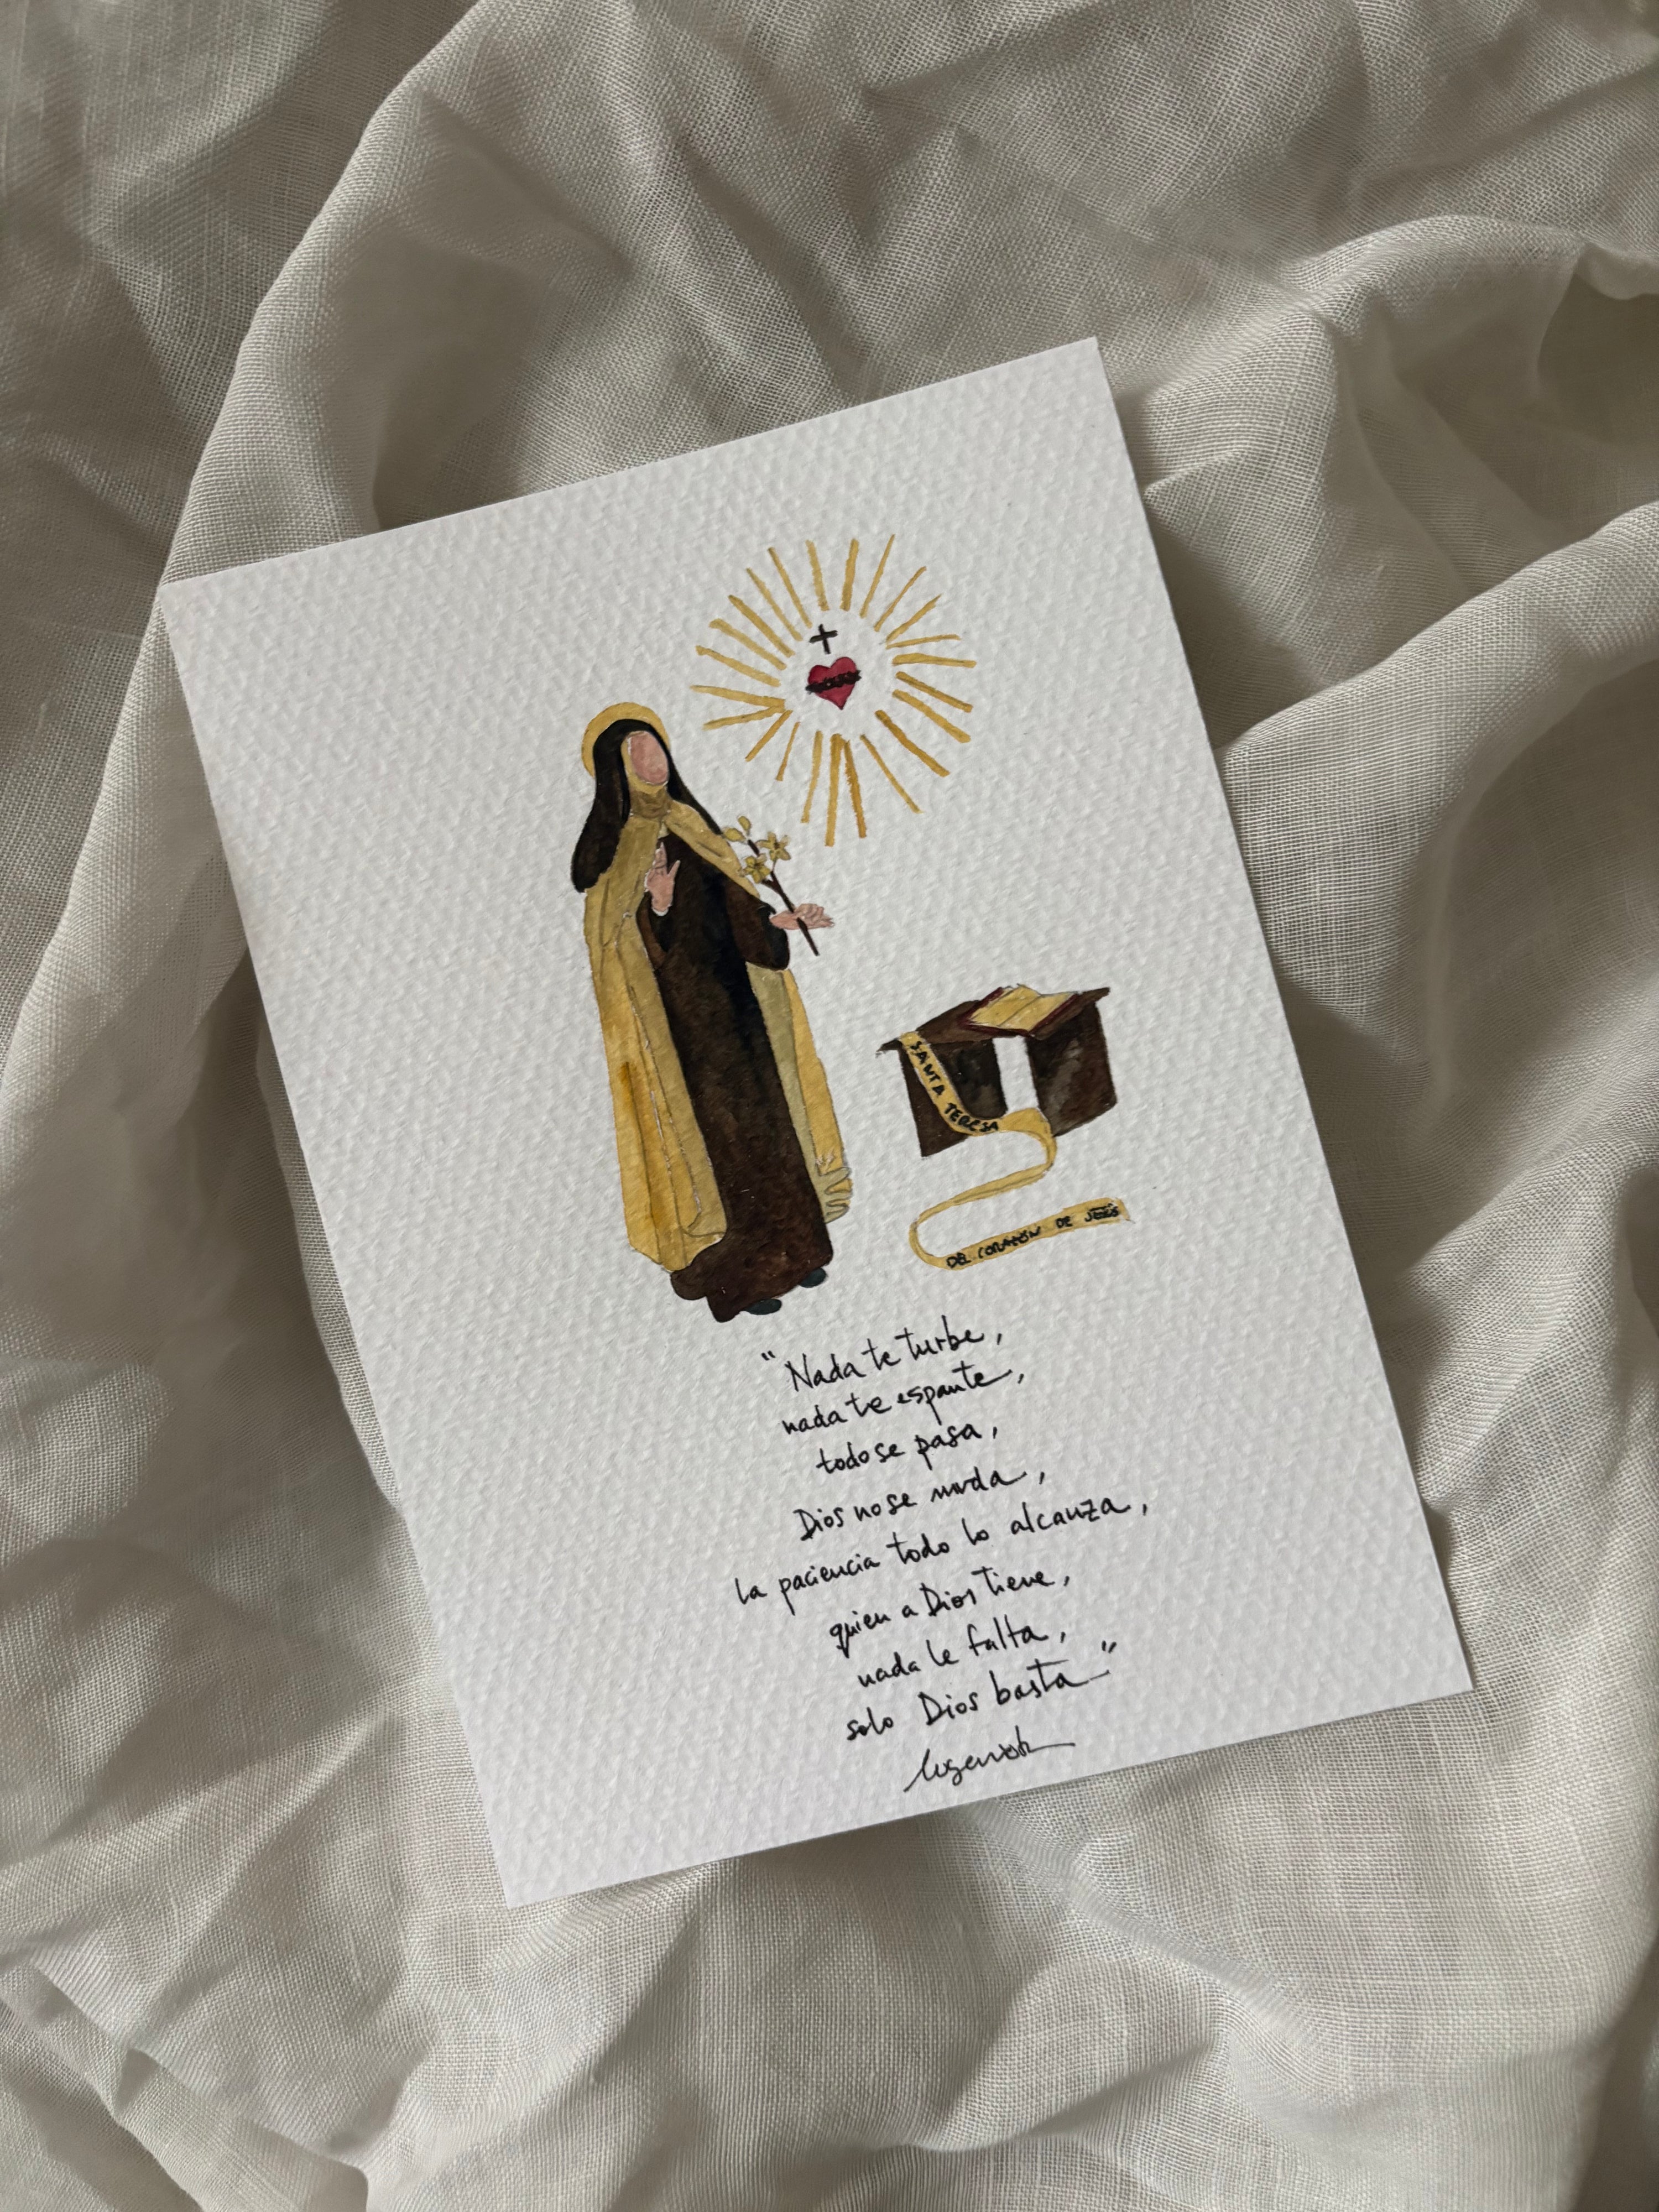 SANTA TERESA
DEL CORAZÓN DE JESÚS
"Nada te turbe,
nada te espante,
todo se pasa,
Dios no se muda,
la paciencia todo lo alcanza,
quien a Dios tiene,
nada le falta,
solo Dios basta"